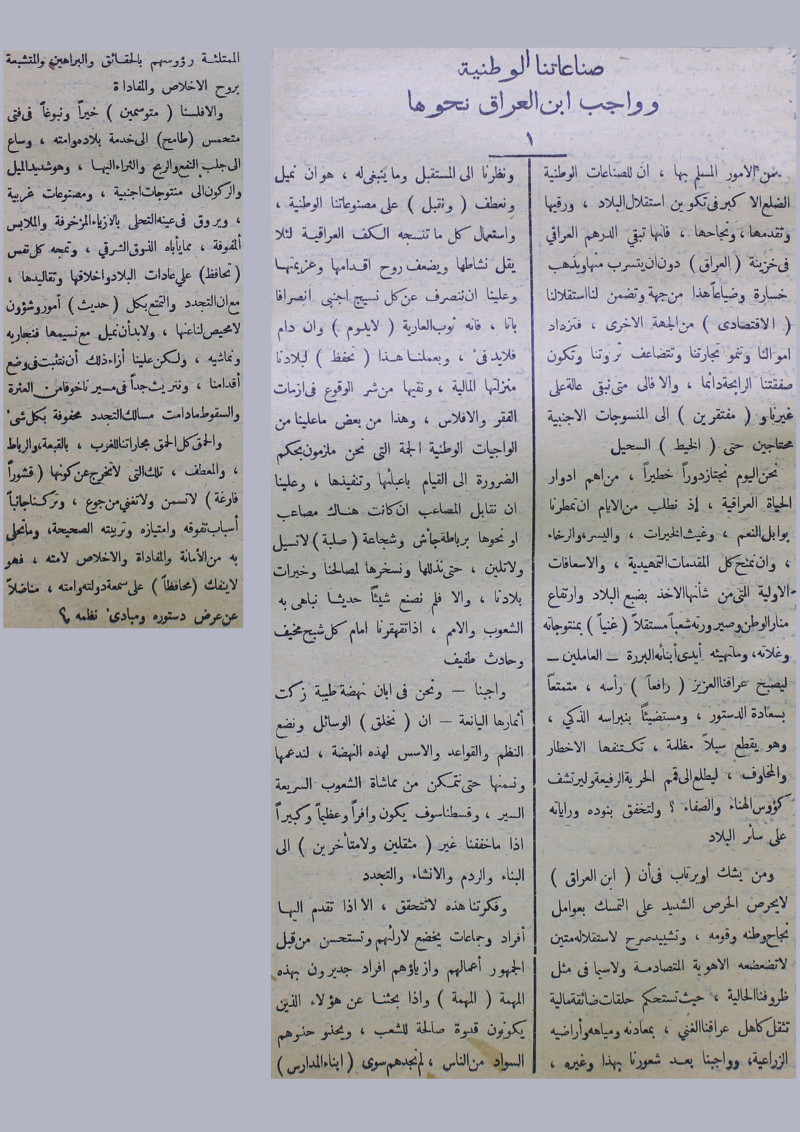 صناعاتنا الوطنية
وواجب ابن العراق نحوها
١
من الامور المسلم بها ، ان للصناعات الوطنية
الضلع الاكبر فى تكوين استقلال البلاد ، ورقيها
وتقدمها، ونجاحها ، فانها تبقي الدرهم العراقي
فى خزينة (العراق) دون ان يتسرب منها ويذهب
خسارة وضياعاً هذا من جهة وتضمن لنا استقلالنا
( الاقتصادى ) من الجهة الاخرى ، فتزداد
اموالنا وتنمو تجارتنا وتتضاعف ثروتنا وتكون
صفقتنا الرابحة دائما ، والا فالى متى نبقي عالة على
غيرنا و ( مفتقرين ) الى المنسوجات الاجنبية
محتاجين حتى ( الخيط ) السحيل
نحن اليوم نجتاز دوراً خطيراً ، من اهم ادوار
الحياة العراقية ، إذ نطلب من الايام ان تمطرنا
بوابل النعم ، وغيث الخيرات ، واليسر، والرخاء
، وان تمنح كل المقدمات التمهيدية ، والاسعافات
الاولية التى من شأنها الاخذ بضبع البلاد وارتفاع
منار الوطن وصيرورته شعباً مستقلاً (غنياً) بمنتوجاته
وغلاته، وما تهيئه أيدى أبنائه البررة – العاملين –
ليصبح عراقنا العزيز ( رافعاً ) رأسه ، متمتعاً
بسعادة الدستور ، ومستضيئاً بنبراسه الذكي ،
وهو يقطع سبلاً مظلمة ، تكتنفها الاخطار
والمخاوف ، ليطلع الى قمم الحرية الرفيعة وليرتشف
كؤوس الهناء والصفاء ؟ ولتخفق بنوده وراياته
على سائر البلاد
ومن يشك اويرتاب فى أن ( ابن العراق )
لايحرص الحرص الشديد على التمسك بعوامل
نجاح وطنه وقومه ، وتشييد صرح لاستقلاله متين
لاتضعضعه الاهوية المتصادمة ولاسيما فى مثل
ظروفنا الحالية ، حيث تستحكم حلقات ضائقة مالية
تثقل كاهل عراقنا الغني ، بمعادنه ومياهه وأراضيه
الزراعية، وواجبنا بعد شعورنا بهذا وغيره ،
ونظرنا الى المستقبل وما ينبغى له ، هو ان نميل
ونعطف ( ونقبل ) على مصنوعاتنا الوطنية ،
واستعمال كل ما تنسجه الكف العراقية لئلا
يقل نشاطها ويضعف روح اقدامها وعزيمتها
وعلينا ان ننصرف عن كل نسيج اجنبي انصرافا
باتا ، فانه ثوب العارية ( لايدوم ) وان دام
فلايدفىء ، وبعملنا هذا ( نحفظ ) لبلادنا
منزلتها المالية ، ونقيها من شر الوقوع فى ازمات
الفقر والافلاس ، وهذا من بعض ماعلينا من
الواجبات الوطنية الجمة التى نحن ملزمون بحكم
الضرورة الى القيام باعبائها وتنفيذها ، وعلينا
ان نقابل المصاعب ان كانت هناك مصاعب
او نحوها برباطة جأش وشجاعة (صلبة) لاتسيل
ولاتلين ، حتى نذللها ونسخرها لمصالحنا وخيرات
بلادنا ، والا فلم نصنع شيئاً حديثا نباهى به
الشعوب والامم ، اذا تقهقرنا امام كل شبح مخيف
وحادث طفيف
واجبنا – ونحن فى ابان نهضة طيبة زكت
أثمارها اليانعة – ان ( نخلق ) الوسائل ونضع
النظم والقواعد والاسس لهذه النهضة ، لندعمها
ونسمنها حتى نتمكن من مماشاة الشعوب السريعة
السير ، وقسطنا سوف يكون وافراً وعظيماً وكبيراً
اذا ماخففنا غير ( مثقلين ولامتأخرين ) الى
البناء والردم والانشاء والتجدد
وفكرتنا هذه لاتتحقق ، الا اذا تقدم اليها
أفراد وجماعات يخضع لارائهم وتستحسن من قبل
الجمهور أعمالهم وازياؤهم افراد جديرون بهذه
المهمة ( المهمة ) واذا بحثنا عن هؤلاء الذين
يكونون قدوة صالحة للشعب ، ويحذو حذوهم
السواد من الناس ، لم نجدهم سوى ( ابناء المدارس )
الممتلئة رؤوسهم بالحقائق والبراهين والمتشبعة
بروح الاخلاص والمفاداة
والا فلسنا ( متوسمين ) خيراً ونبوغاً فى فتى
متحمس (طامح) الى خدمة بلاده وامته ، وساع
الى جلب النفع والربح والثراء اليها ، وهو شديد الميل
والركون الى منتوجات اجنبية ، ومصنوعات غربية
، ويروق فى عينه التحلى بالازياء المزخرفة والملابس
المفوفة ، مما يأباه الذوق الشرقي ، وتمجه كل نفس
(تحافظ) على عادات البلاد واخلاقها وتقاليدها ،
مع ان التجدد والتمتع بكل ( حديث ) أمور وشؤون
لامحيص لنا عنها ، ولابد أن نميل مع نسيمها فنجاريه
ونماشيه ، ولكن علينا أزاء ذلك أن نتثبت فى وضع
أقدامنا ، ونتريث جداً فى مسيرنا خوفا من العثرة
والسقوط مادامت مسالك التجدد محفوفة بكل شىء
والحمق كل الحمق مجاراتنا للغرب ، بالقبعة، والرباط
، والمعطف ، تلك التى لا تخرج عن كونها ( قشوراً
فارغة ) لاتسمن ولاتغني من جوع ، وتركنا جانباً
أسباب تفوقه وامتيازه وتربيته الصحيحة، وماتحلى
به من الأمانة والمفاداة والاخلاص لامته ، فهو
لاينفك (محافظاً) على سمعة دولته وامته ، مناضلاً
عن عرض دستوره ومبادىء نظمه